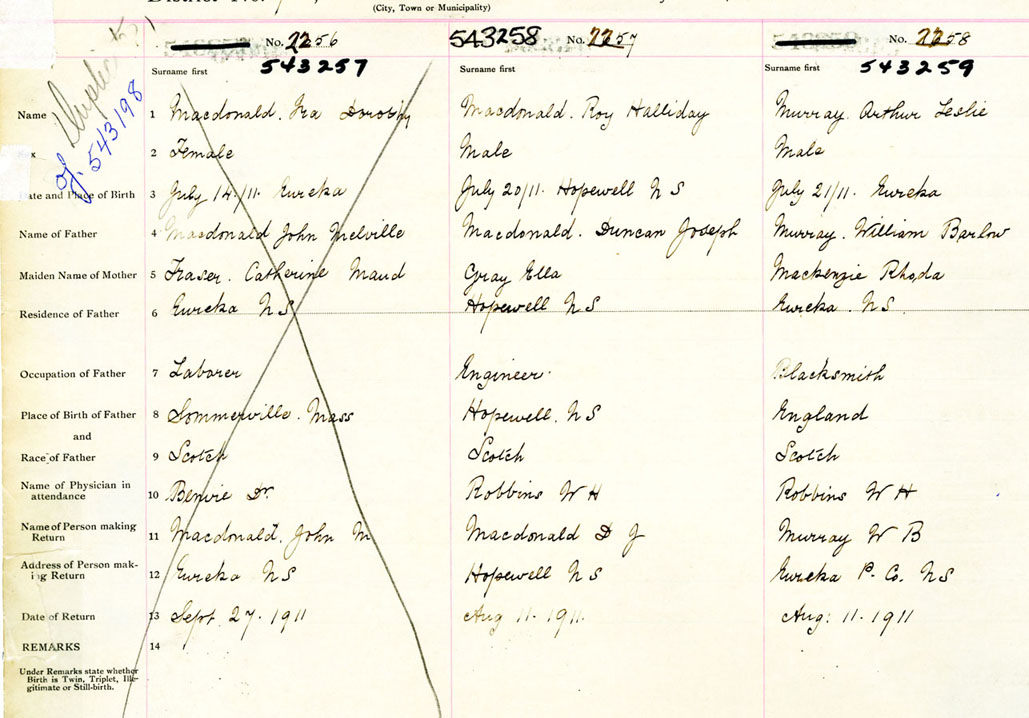 District No.
(City, Town or Municipality)
No. 2256 543258 No. 2257 No. 2258
Surname first 543257 Surname first Surname first 543259
Duplicate
of 543198
Name 1 Macdonald. Ira Dorothy Macdonald. Roy Halliday Murray. Arthur Leslie
2 Female Male Male
Date and Place of Birth 3 July 14/11. Eureka July 20/11. Hopewell N S July 21/11. Eureka
Name of Father 4 Macdonald John Melville Macdonald. Duncan Joseph Murray. William Barlow
Maiden Name of Mother 5 Fraser. Catherine Maud Gray Ella Mackenzie Rhoda
Residence of Father 6 Eureka N S Hopewell N S Eureka. N S.
Occupation of Father 7 Laborer Engineer. Blacksmith
Place of Birth of Father 8 Sommerville. Mass Hopewell. N S England
and
Race of Father 9 Scotch Scotch Scotch
Name of Physician in
attendance 10 Benvie Dr. Robbins W H Robbins W H
Name of Person making
Return 11 Macdonald. John M Macdonald D J Murray W B
Address of Person mak-
ing Return 12 Eureka N S Hopewell N S Eureka P. Co. N S
Date of Return 13 Sept. 27. 1911 Aug 11. 1911. Aug: 11. 1911
REMARKS 14
Under Remarks state whether
Birth is Twin, Triplet, Ille-
gitimate or Still-birth.